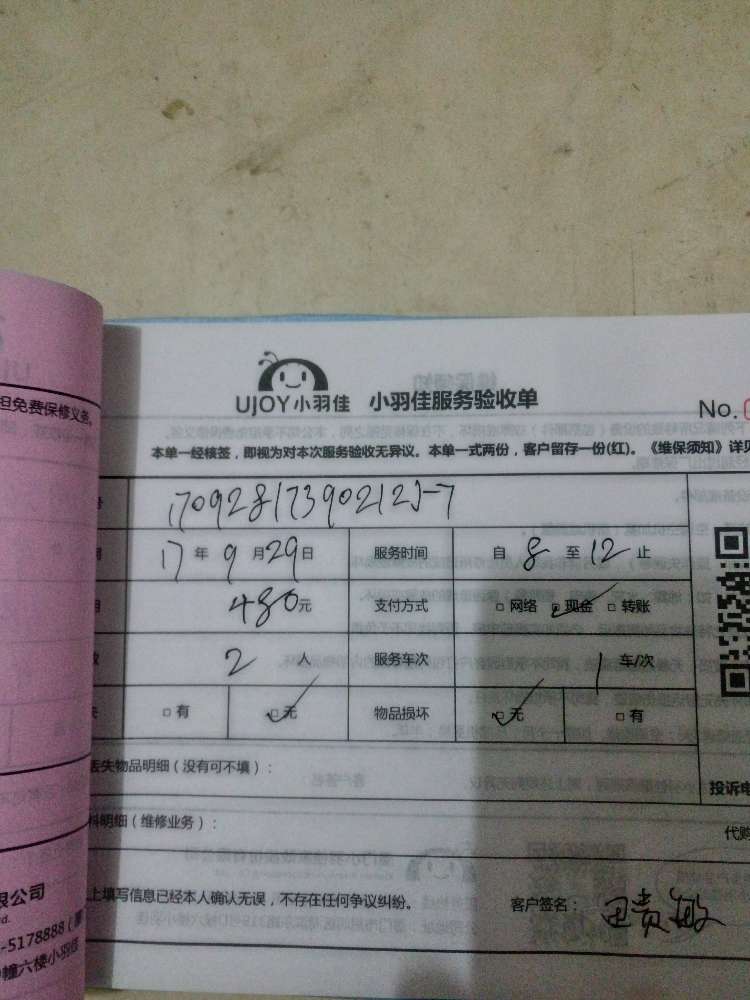 UJOY小羽佳 小羽佳服务验收单
No.
本单一经核签，即视为对本次服务验收无异议。本单一式两份，客户留存一份(红)。《维保须知》详见
号 170928173902125-7
17年9月29日 服务时间 自8至12止
480元 支付方式 □网络 □现金 □转账
2人 服务车次 1车/次
□有 □无 物品损坏 □无 □有
丢失物品明细（没有可不填）：
投诉电
料明细（维修业务）：
代购
上填写信息已经本人确认无误，不存在任何争议纠纷。 客户签名：田贵敏
担免费保修义务。
限公司
td.
-5178888（厦
幢六楼小羽佳